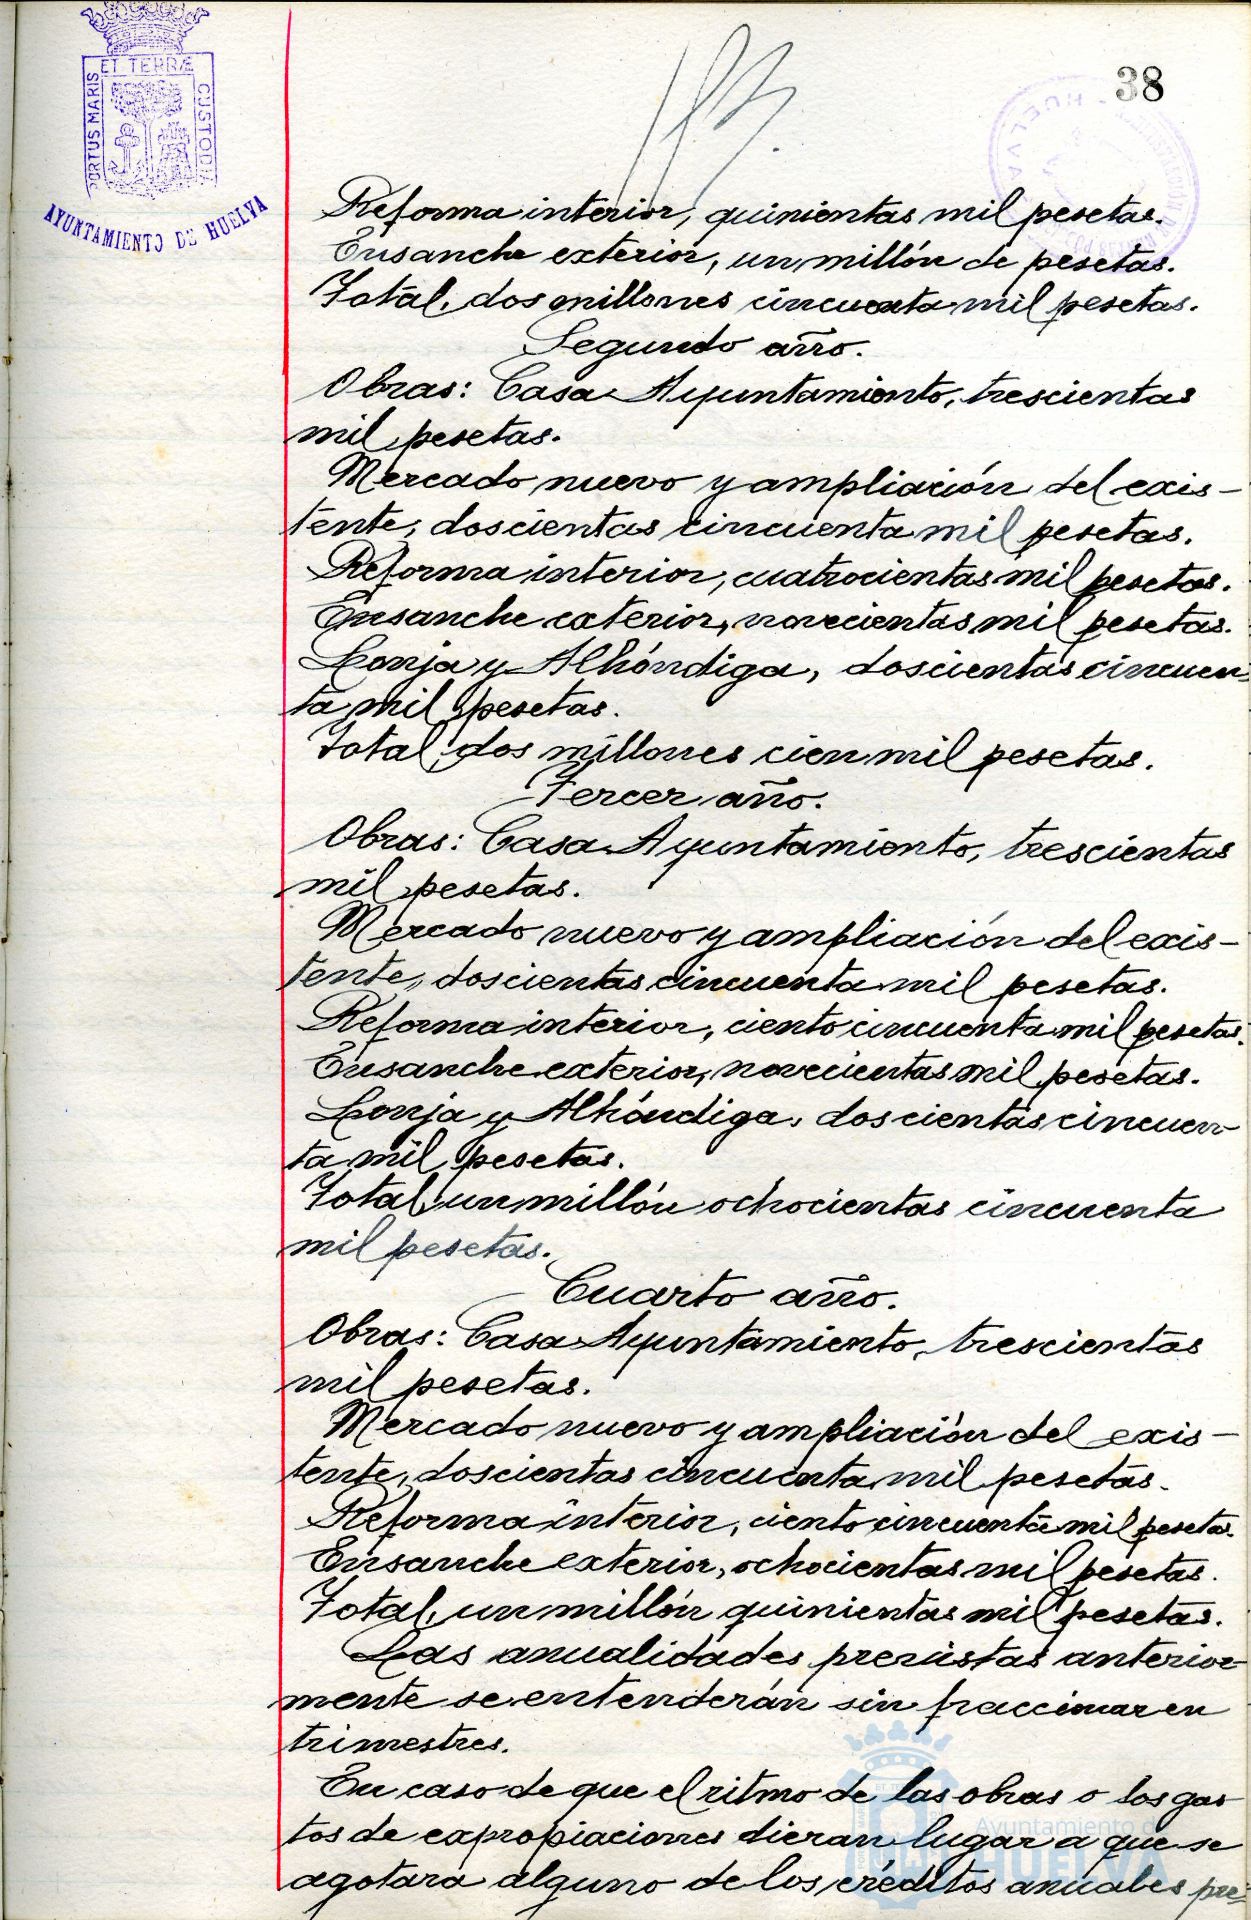 ET TERRÆ
PORTUS MARIS
CUSTODIA
AYUNTAMIENTO DE HUELVA
38
HUELVA
Reforma interior, quinientas mil pesetas.
Ensanche exterior, un millón de pesetas.
Total, dos millones cincuenta mil pesetas.
Segundo año.
Obras: Casa Ayuntamiento, trescientas
mil pesetas.
Mercado nuevo y ampliación del exis-
tente, doscientas cincuenta mil pesetas.
Reforma interior, cuatrocientas mil pesetas.
Ensanche exterior, novecientas mil pesetas.
Lonja y Alhóndiga, doscientas cincuen-
ta mil pesetas.
Total, dos millones cien mil pesetas.
Tercer año.
Obras: Casa Ayuntamiento, trescientas
mil pesetas.
Mercado nuevo y ampliación del exis-
tente, doscientas cincuenta mil pesetas.
Reforma interior, ciento cincuenta mil pesetas.
Ensanche exterior, novecientas mil pesetas.
Lonja y Alhóndiga, doscientas cincuen-
ta mil pesetas.
Total, un millón ochocientas cincuenta
mil pesetas.
Cuarto año.
Obras: Casa Ayuntamiento, trescientas
mil pesetas.
Mercado nuevo y ampliación del exis-
tente, doscientas cincuenta mil pesetas.
Reforma interior, ciento cincuenta mil pesetas.
Ensanche exterior, ochocientas mil pesetas.
Total, un millón quinientas mil pesetas.
Las anualidades previstas anterior-
mente se entenderán sin fraccionar en
trimestres.
En caso de que el ritmo de las obras o los gas-
tos de expropiaciones dieran lugar a que se
agotara alguno de los créditos anuales pre-
Ayuntamiento de
HUELVA